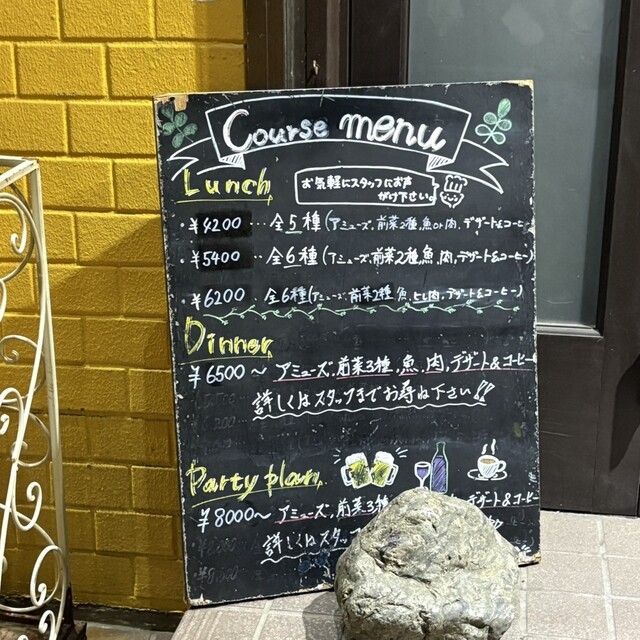 Course menu
Lunch
お気軽にスタッフにお声
がけ下さい。
・¥4200…全5種(アミューズ,前菜2種,魚or肉,デザート&コーヒー
・¥5400…全6種(アミューズ,前菜2種,魚,肉,デザート&コーヒー)
・¥6200…全6種(アミューズ,前菜2種,魚,肉,デザート&コーヒー)
Dinner
¥6500〜アミューズ,前菜3種,魚,肉,デザート&コーヒー
詳しくはスタッフまでお尋ね下さい!!
Party plan
¥8000〜アミューズ,前菜3種
デザート&コーヒー
詳しくはスタッフ